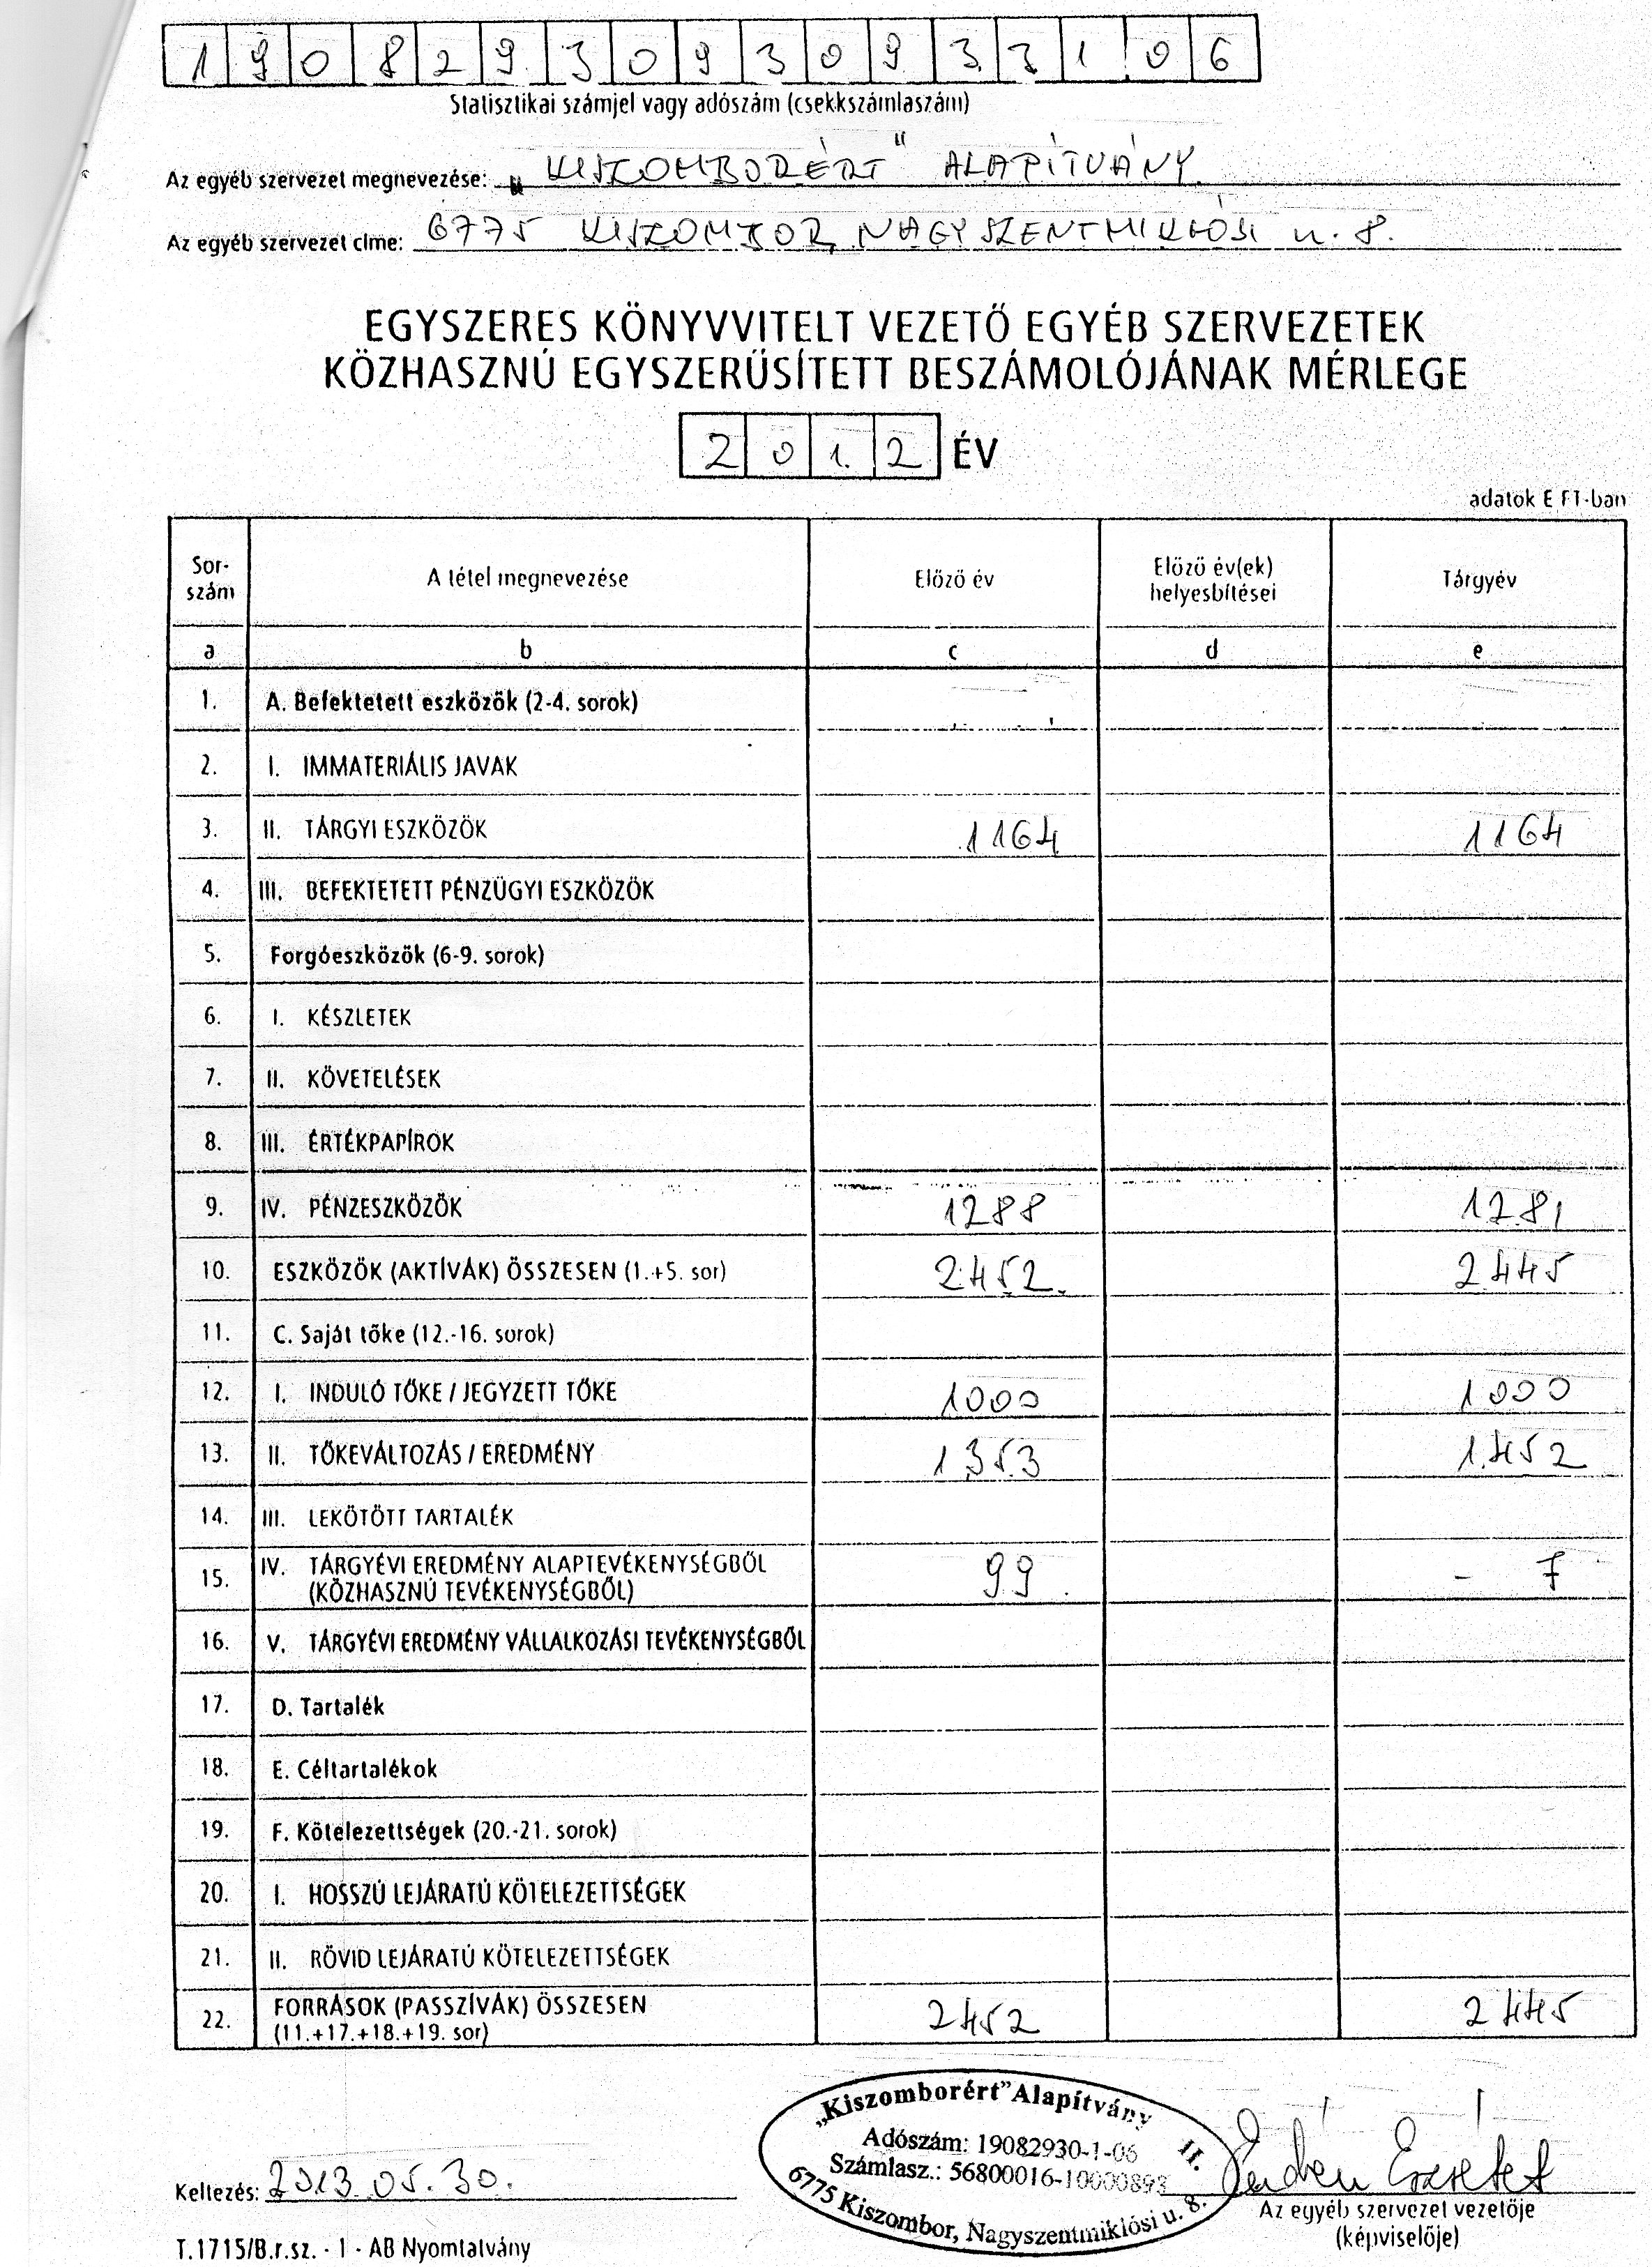 1 9 0 8 2 9 3 0 9 3 0 9 3 3 1 0 6
Statisztikai számjel vagy adószám (csekkszámlaszám)
Az egyéb szervezet megnevezése: „KISZOMBORÉRT" ALAPÍTVÁNY
Az egyéb szervezet címe: 6775 KISZOMBOR, NAGYSZENTMIKLÓSI u. 8.
EGYSZERES KÖNYVVITELT VEZETŐ EGYÉB SZERVEZETEK
KÖZHASZNÚ EGYSZERŰSÍTETT BESZÁMOLÓJÁNAK MÉRLEGE
2 0 1 2 ÉV
adatok E FT-ban
Sor-szám A tétel megnevezése Előző év Előző év(ek) helyesbítései Tárgyév
a b c d e
1. A. Befektetett eszközök (2-4. sorok)
2. I. IMMATERIÁLIS JAVAK
3. II. TÁRGYI ESZKÖZÖK 1164 1164
4. III. BEFEKTETETT PÉNZÜGYI ESZKÖZÖK
5. Forgóeszközök (6-9. sorok)
6. I. KÉSZLETEK
7. II. KÖVETELÉSEK
8. III. ÉRTÉKPAPÍROK
9. IV. PÉNZESZKÖZÖK 1288 1281
10. ESZKÖZÖK (AKTÍVÁK) ÖSSZESEN (1.+5. sor) 2452 2445
11. C. Saját tőke (12.-16. sorok)
12. I. INDULÓ TŐKE / JEGYZETT TŐKE 1000 1000
13. II. TŐKEVÁLTOZÁS / EREDMÉNY 1353 1452
14. III. LEKÖTÖTT TARTALÉK
15. IV. TÁRGYÉVI EREDMÉNY ALAPTEVÉKENYSÉGBŐL (KÖZHASZNÚ TEVÉKENYSÉGBŐL) 99 - 7
16. V. TÁRGYÉVI EREDMÉNY VÁLLALKOZÁSI TEVÉKENYSÉGBŐL
17. D. Tartalék
18. E. Céltartalékok
19. F. Kötelezettségek (20.-21. sorok)
20. I. HOSSZÚ LEJÁRATÚ KÖTELEZETTSÉGEK
21. II. RÖVID LEJÁRATÚ KÖTELEZETTSÉGEK
22. FORRÁSOK (PASSZÍVÁK) ÖSSZESEN (11.+17.+18.+19. sor) 2452 2445
„Kiszomborért" Alapítvány II.
Adószám: 19082930-1-06
Számlasz.: 56800016-10000893
6775 Kiszombor, Nagyszentmiklósi u. 8.
Keltezés: 2013. 05. 30.
Az egyéb szervezet vezetője
(képviselője)
T.1715/B.r.sz. - 1 - AB Nyomtatvány